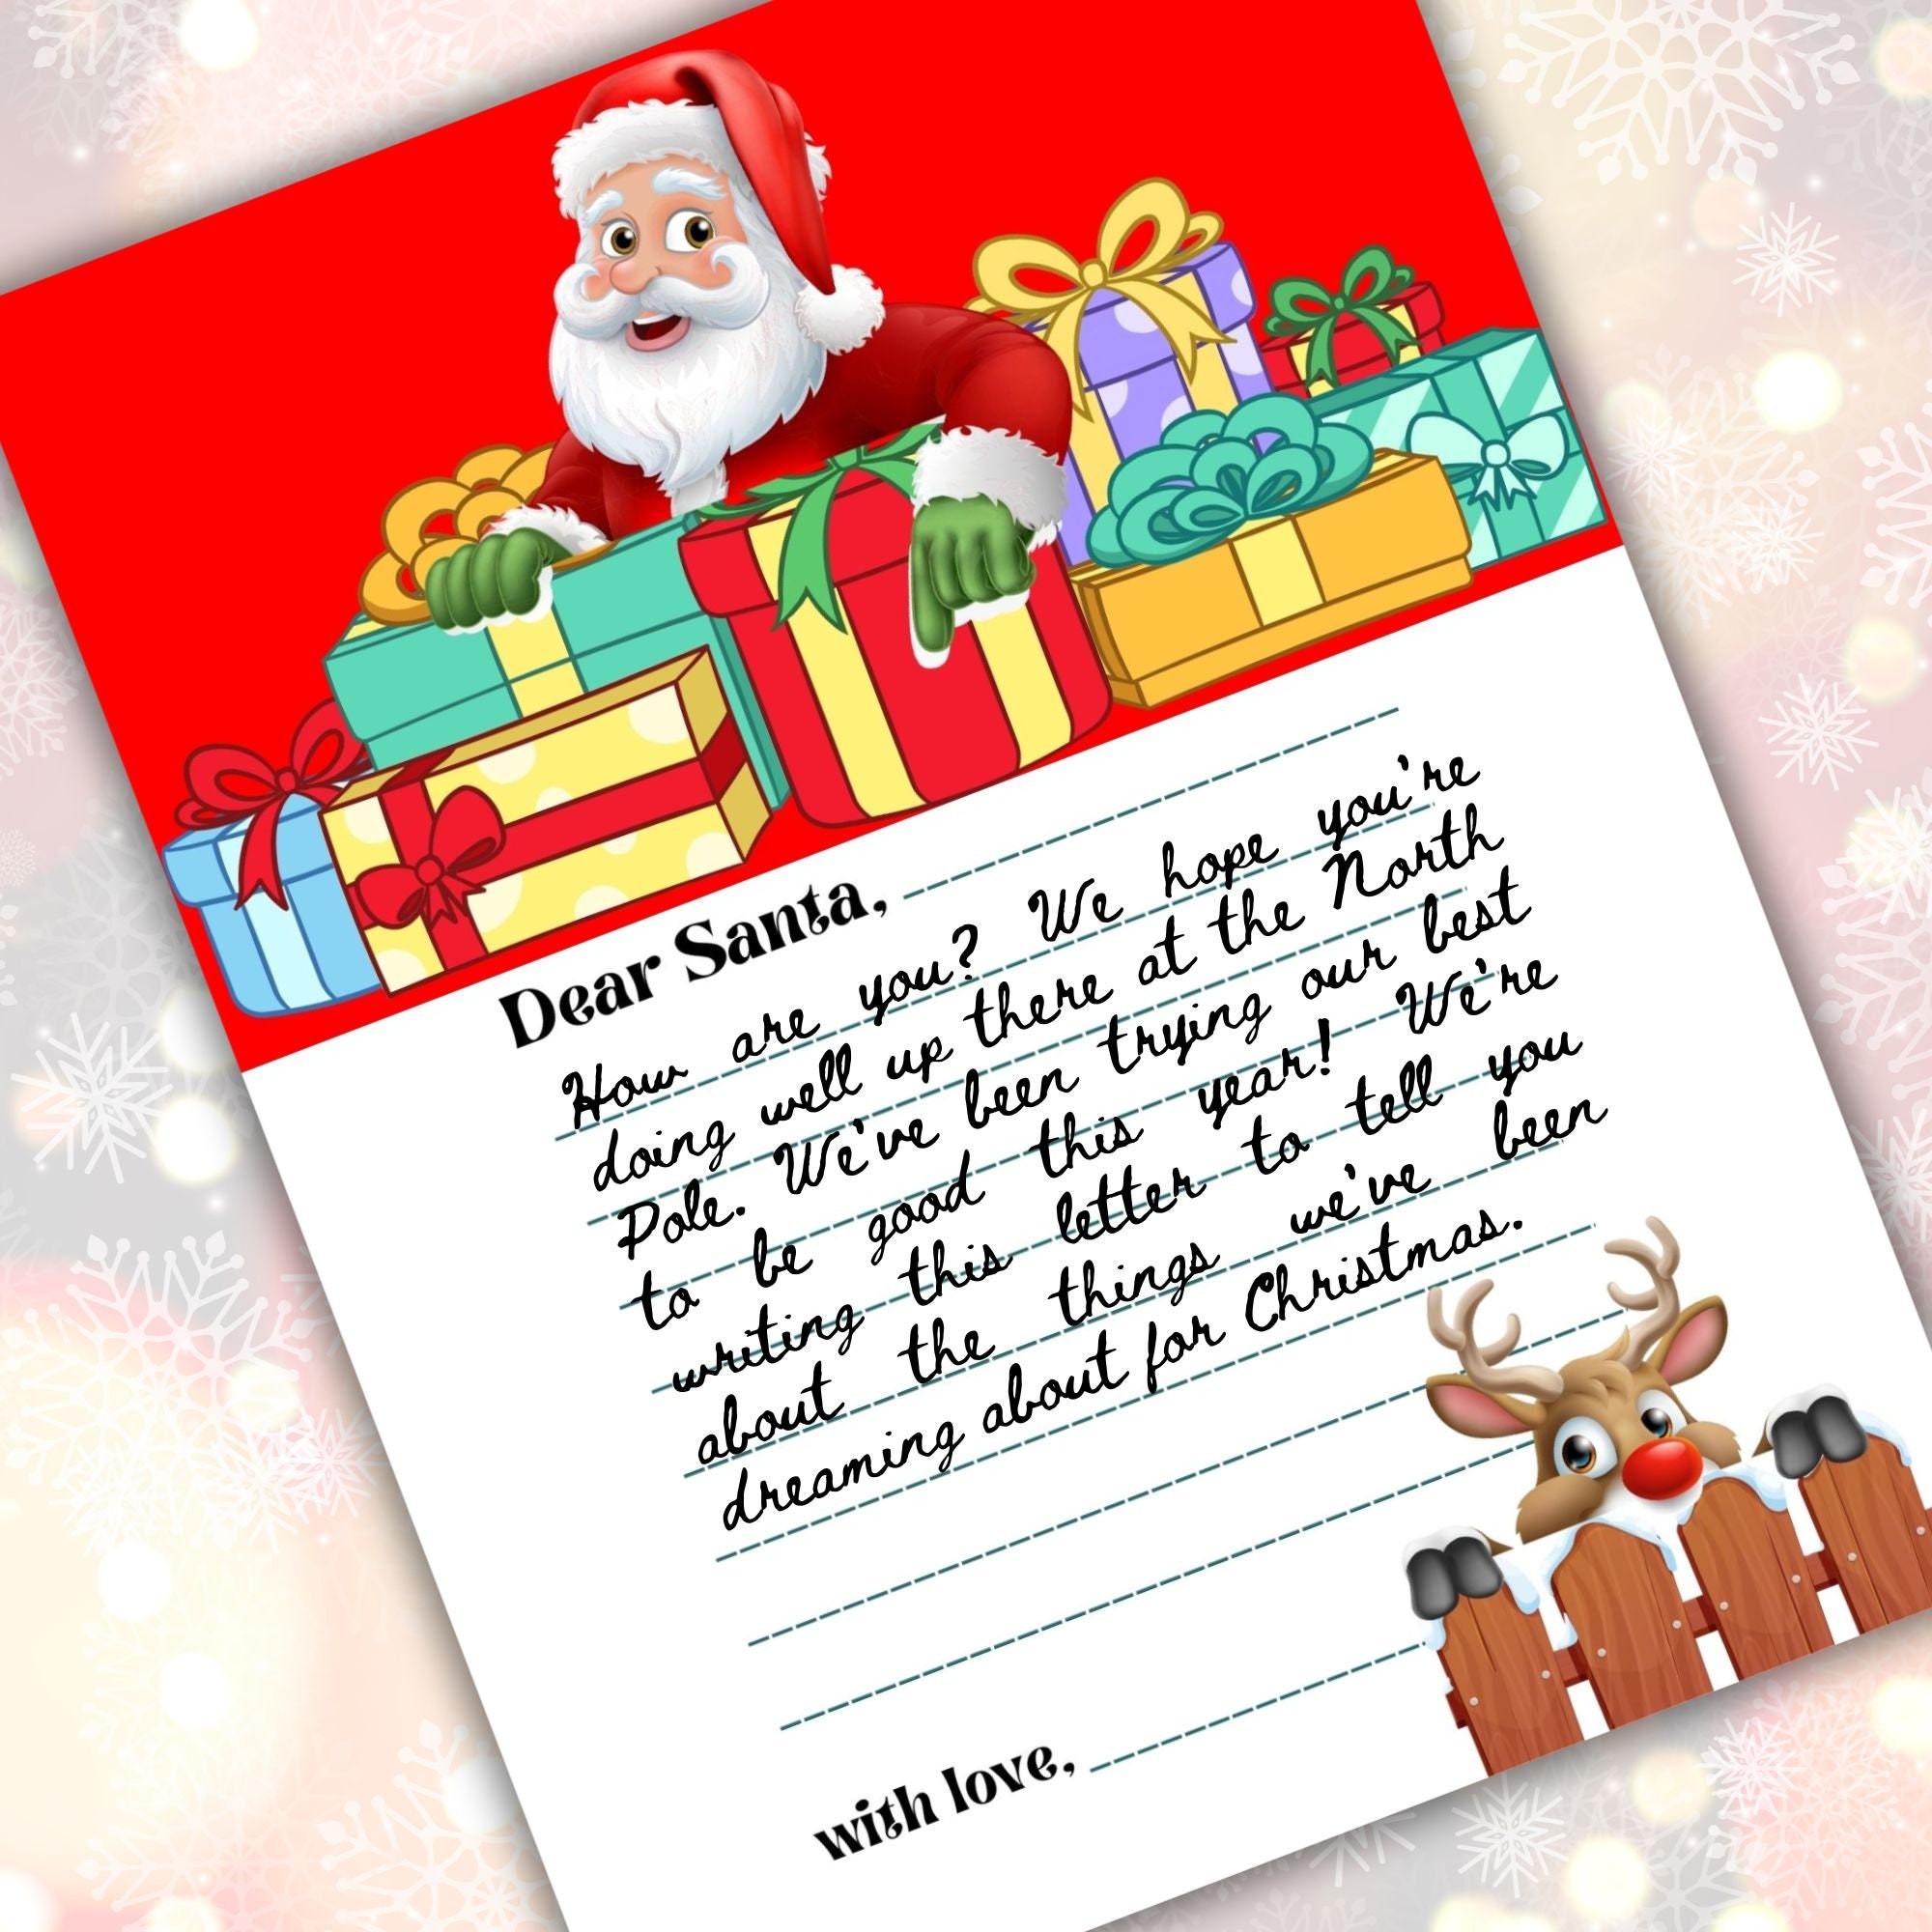 Dear Santa,
How are you? We hope you're
doing well up there at the North
Pole. We've been trying our best
to be good this year! We're
writing this letter to tell you
about the things we've been
dreaming about for Christmas.
with love,